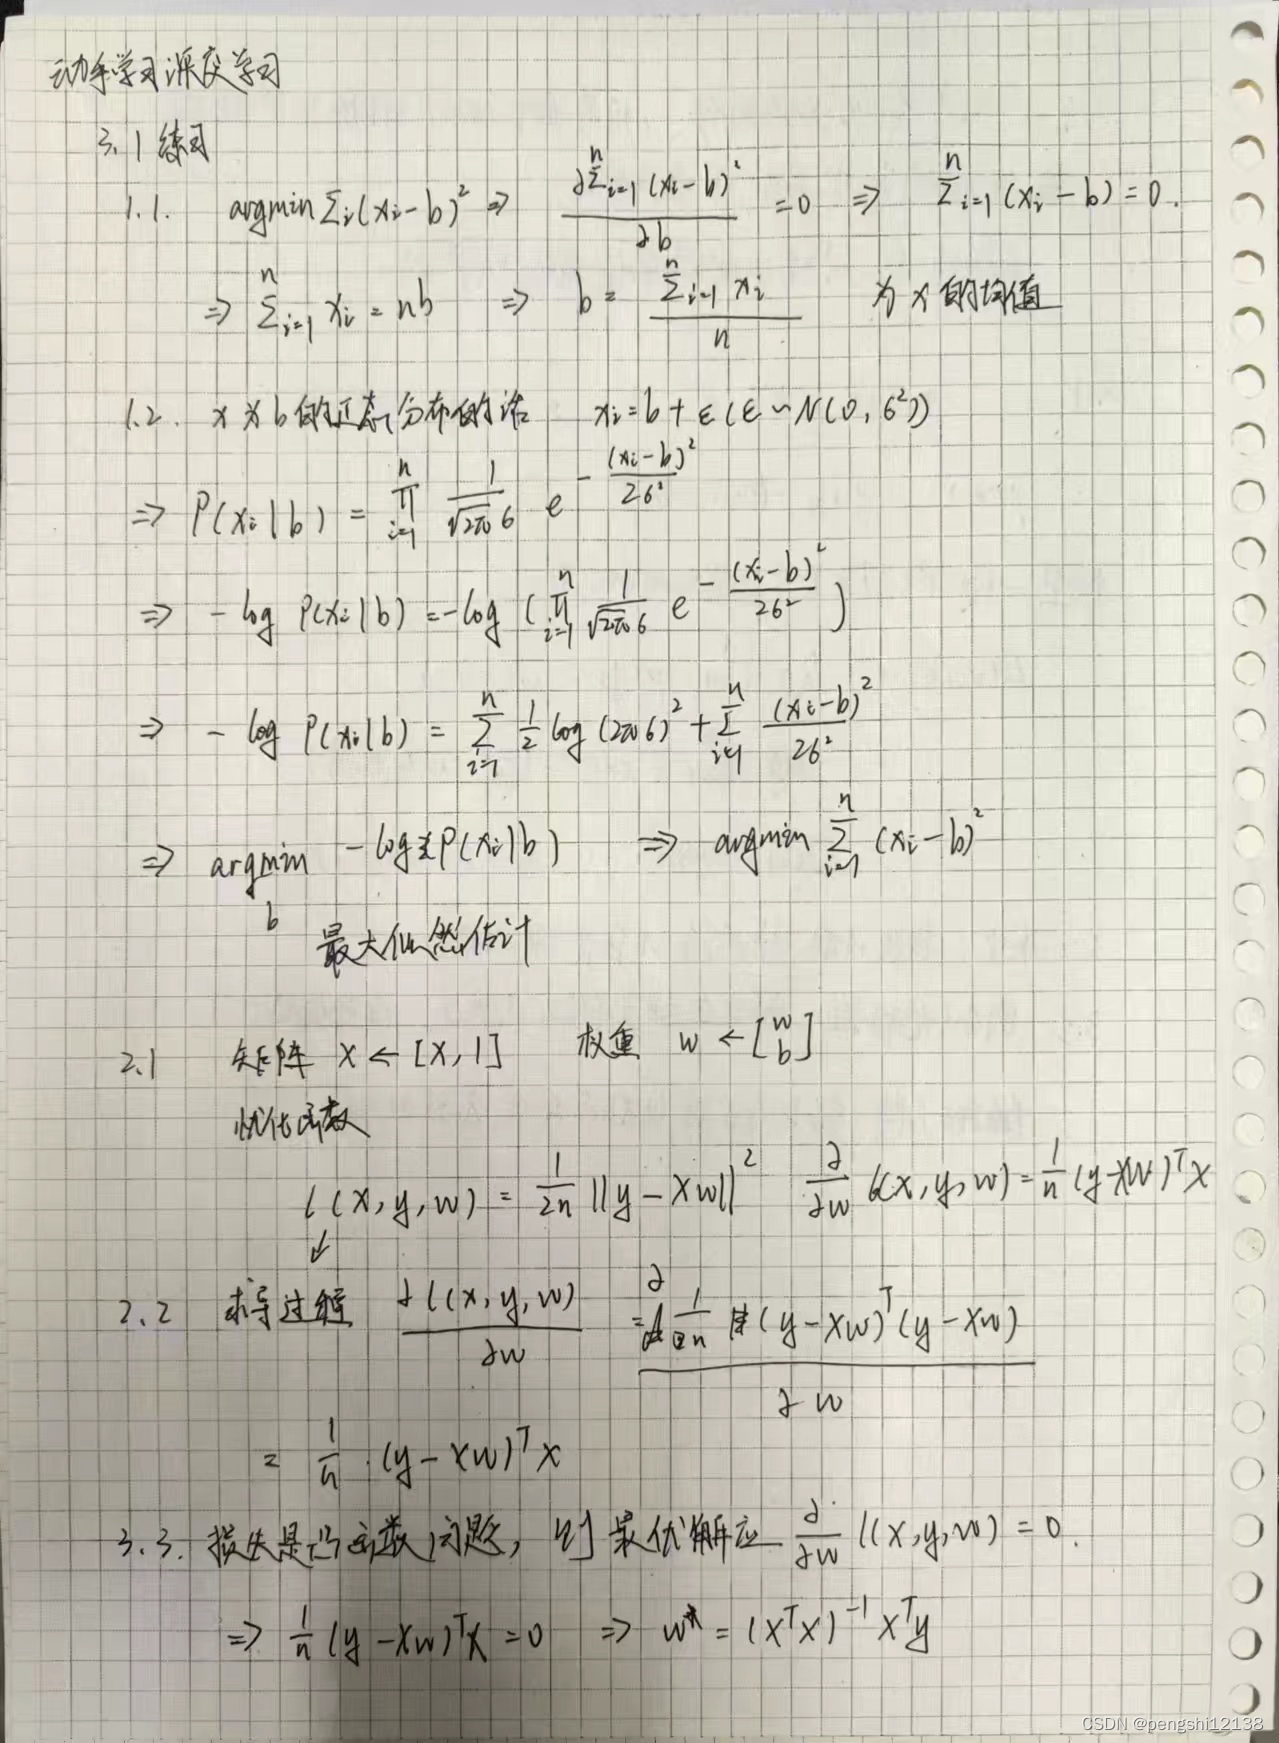 动手学习深度学习
3.1 练习
1.1. argmin Σi(xi-b)² ⇒ ∂Σ^n_{i=1}(xi-b)² / ∂b = 0 ⇒ Σ^n_{i=1}(xi-b)=0.
⇒ Σ^n_{i=1} xi = nb ⇒ b = Σ^n_{i=1} xi / n 为x的均值
1.2. x为b的正态分布的话 xi=b+ε(ε~N(0,6²))
⇒ P(xi|b) = Π^n_{i=1} 1/(√2π 6) e^{-(xi-b)²/26²}
⇒ -log P(xi|b) = -log(Π^n_{i=1} 1/(√2π 6) e^{-(xi-b)²/26²})
⇒ -log P(xi|b) = Σ^n_{i=1} 1/2 log(2π6)² + Σ^n_{i=1} (xi-b)²/26²
⇒ argmin_b -log P(xi|b) ⇒ argmin Σ^n_{i=1}(xi-b)²
最大似然估计
2.1 矩阵 X←[X,1] 权重 w←[w b]
优化函数
l(X,y,w) = 1/2n ||y-Xw||² ∂/∂w l(X,y,w) = 1/n (y-XW)ᵀX
↙
2.2 求导过程 ∂l(X,y,w)/∂w = ∂ 1/2n (y-Xw)ᵀ(y-Xw) / ∂w
= 1/n · (y-Xw)ᵀX
3.3. 损失是凸函数问题, 则最优解应 ∂/∂w l(X,y,w) = 0.
⇒ 1/n (y-Xw)ᵀX = 0 ⇒ w* = (XᵀX)⁻¹Xᵀy
CSDN @pengshi12138